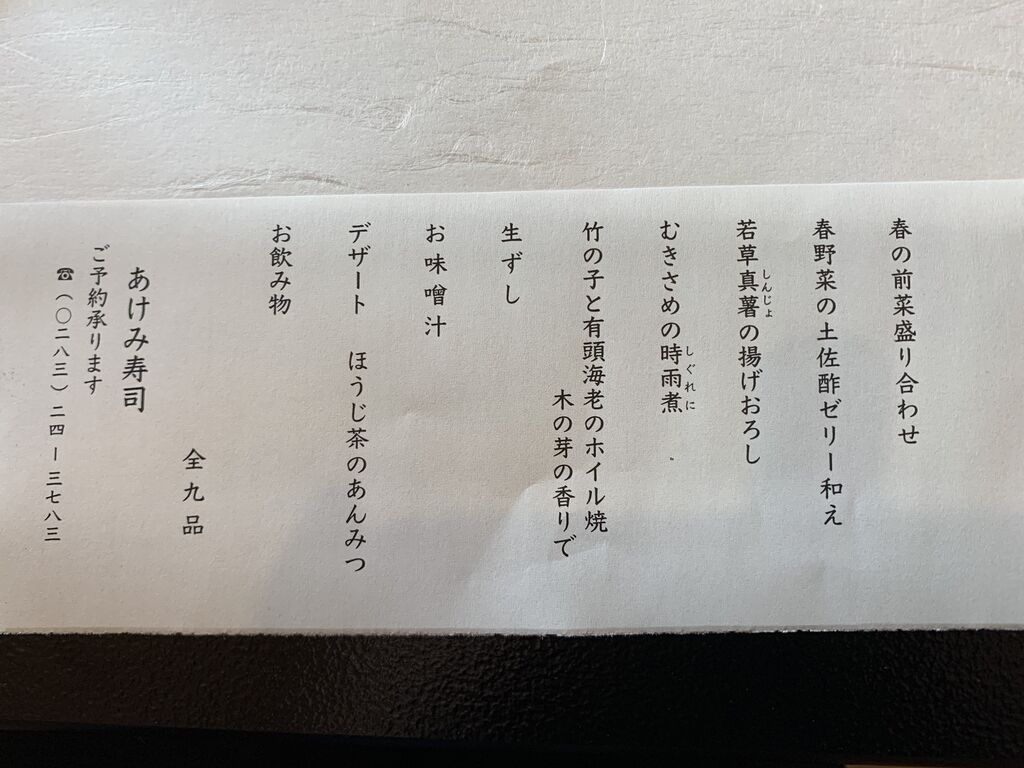 春の前菜盛り合わせ
春野菜の土佐酢ゼリー和え
若草真薯の揚げおろし
しんじょ
むきさめの時雨煮
しぐれに
竹の子と有頭海老のホイル焼
木の芽の香りで
生ずし
お味噌汁
デザート　ほうじ茶のあんみつ
お飲み物
全九品
あけみ寿司
ご予約承ります
☎（〇二八三）二四ー三七八三